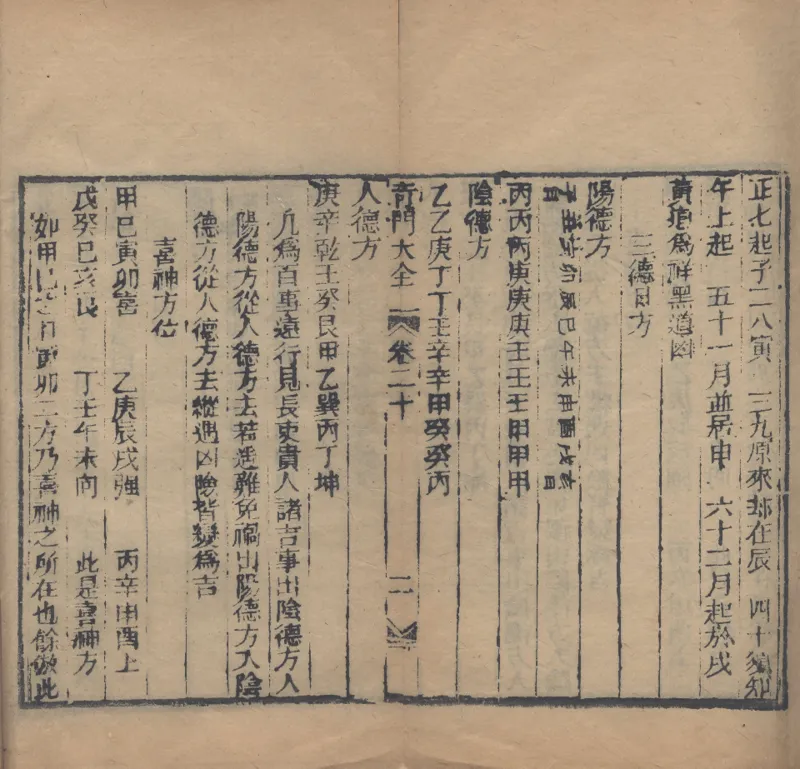 正七起子二八寅　三九原來却在辰　四十須知
午上起　五十一月並居申　六十二月起於戌
黃道爲祥黑道凶
三德日方
陽德方
辰巳午未申酉戌
丙丙丙庚庚庚壬壬壬甲甲甲
陰德方
乙乙庚丁丁壬辛辛甲癸癸丙
奇門大全　卷二十　二
人德方
庚辛乾壬癸艮甲乙巽丙丁坤
凡爲百事遠行見長吏貴人諸吉事出陰德方人
陽德方從人德方去若逃難免禍出陽德方入陰
德方從人德方去縱遇凶險皆變爲吉
喜神方位
甲巳寅卯喜　乙庚辰戌强　丙辛申酉上
戊癸巳亥艮　丁壬午未向　此是喜神方
如甲巳之日寅卯二方乃喜神之所在也餘倣此